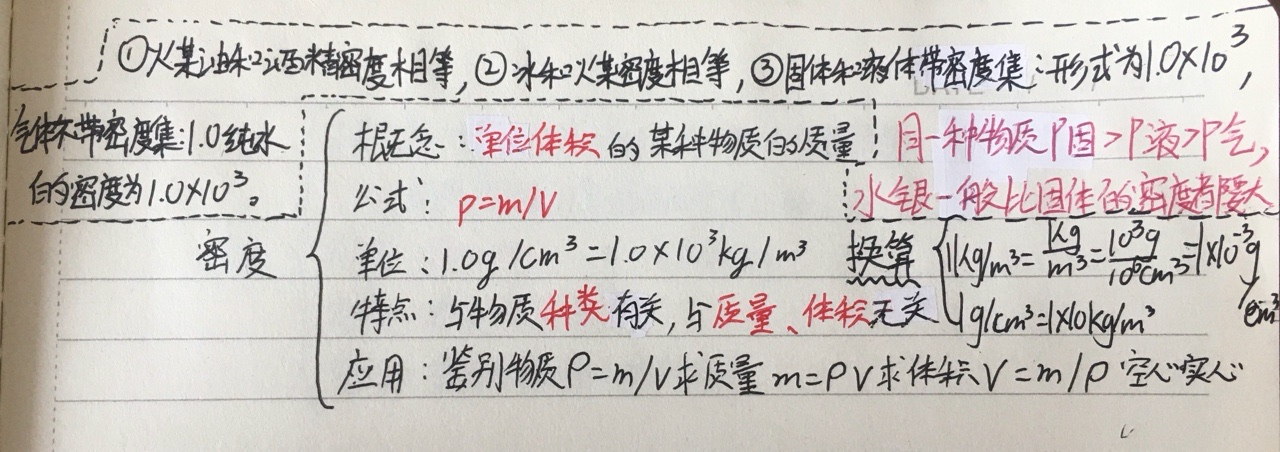 ①火某油和酒精密度相等,②冰和火某密度相等,③固体和液体带密度集:形式为1.0×10³,
气体不带密度集:1.0纯水
的密度为1.0×10³。
密度
概念:单位体积的某种物质的质量
公式:ρ=m/V
单位:1.0g/cm³=1.0×10³kg/m³
特点:与物质种类有关,与质量、体积无关
应用:鉴别物质ρ=m/V求质量m=ρV求体积V=m/ρ空心实心
同一种物质ρ固>ρ液>ρ气,
水银一般比固体的密度都要大
换算
1kg/m³=kg/m³=10³g/10⁶cm³=1×10⁻³g/cm³
1g/cm³=1×10kg/m³